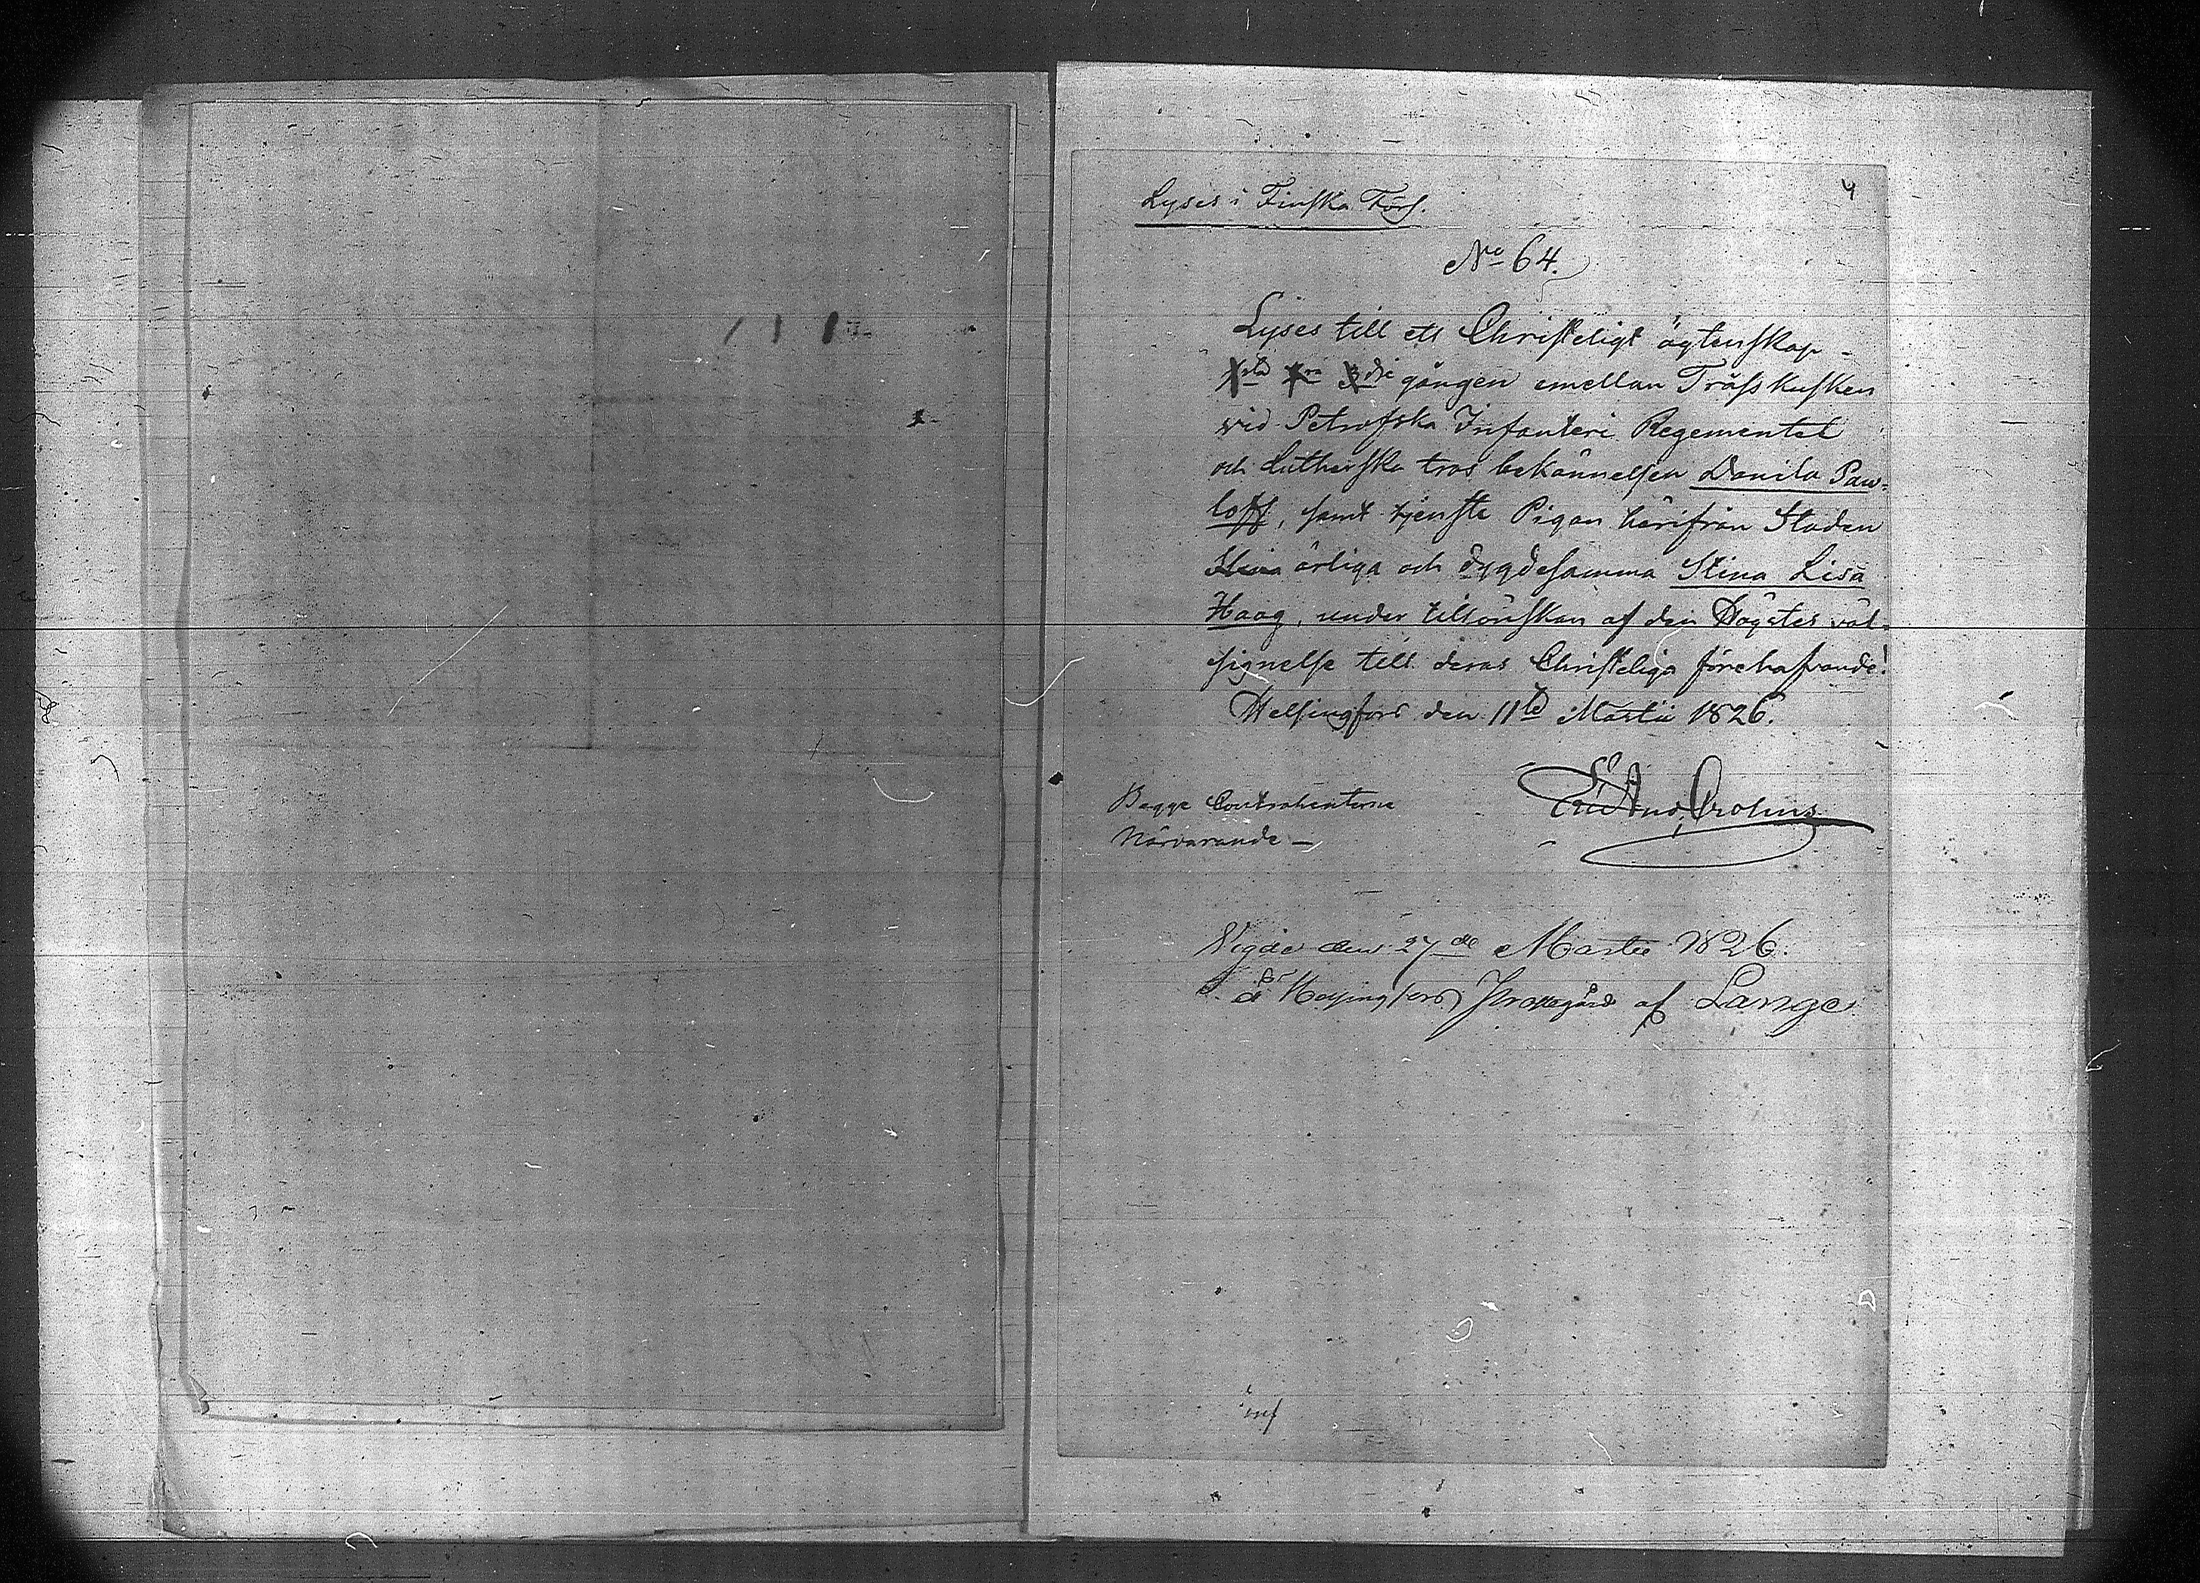 4
Lyses i Finska Förs.
No 64.
Lyses till ett Christeligt ägtenskap
1sta 2ra 3dje gången emellan Trässkusken
vid Petrofska Infanteri Regementet
och Lutherska tros bekännelsen Danila Paw=
loff, samt tjenste Pigan härifrån Staden
Stina ärliga och dygdesamma Stina Lisa
Haag, under tillönskan af den Högstes väl-
signelse till deras Christeliga förehafvande!
Helsingfors den 11te Martii 1826.
Bagge Contrahenterne
Närvarande —
Vigde den 27de Martii 1826.
Helsingfors af Lange